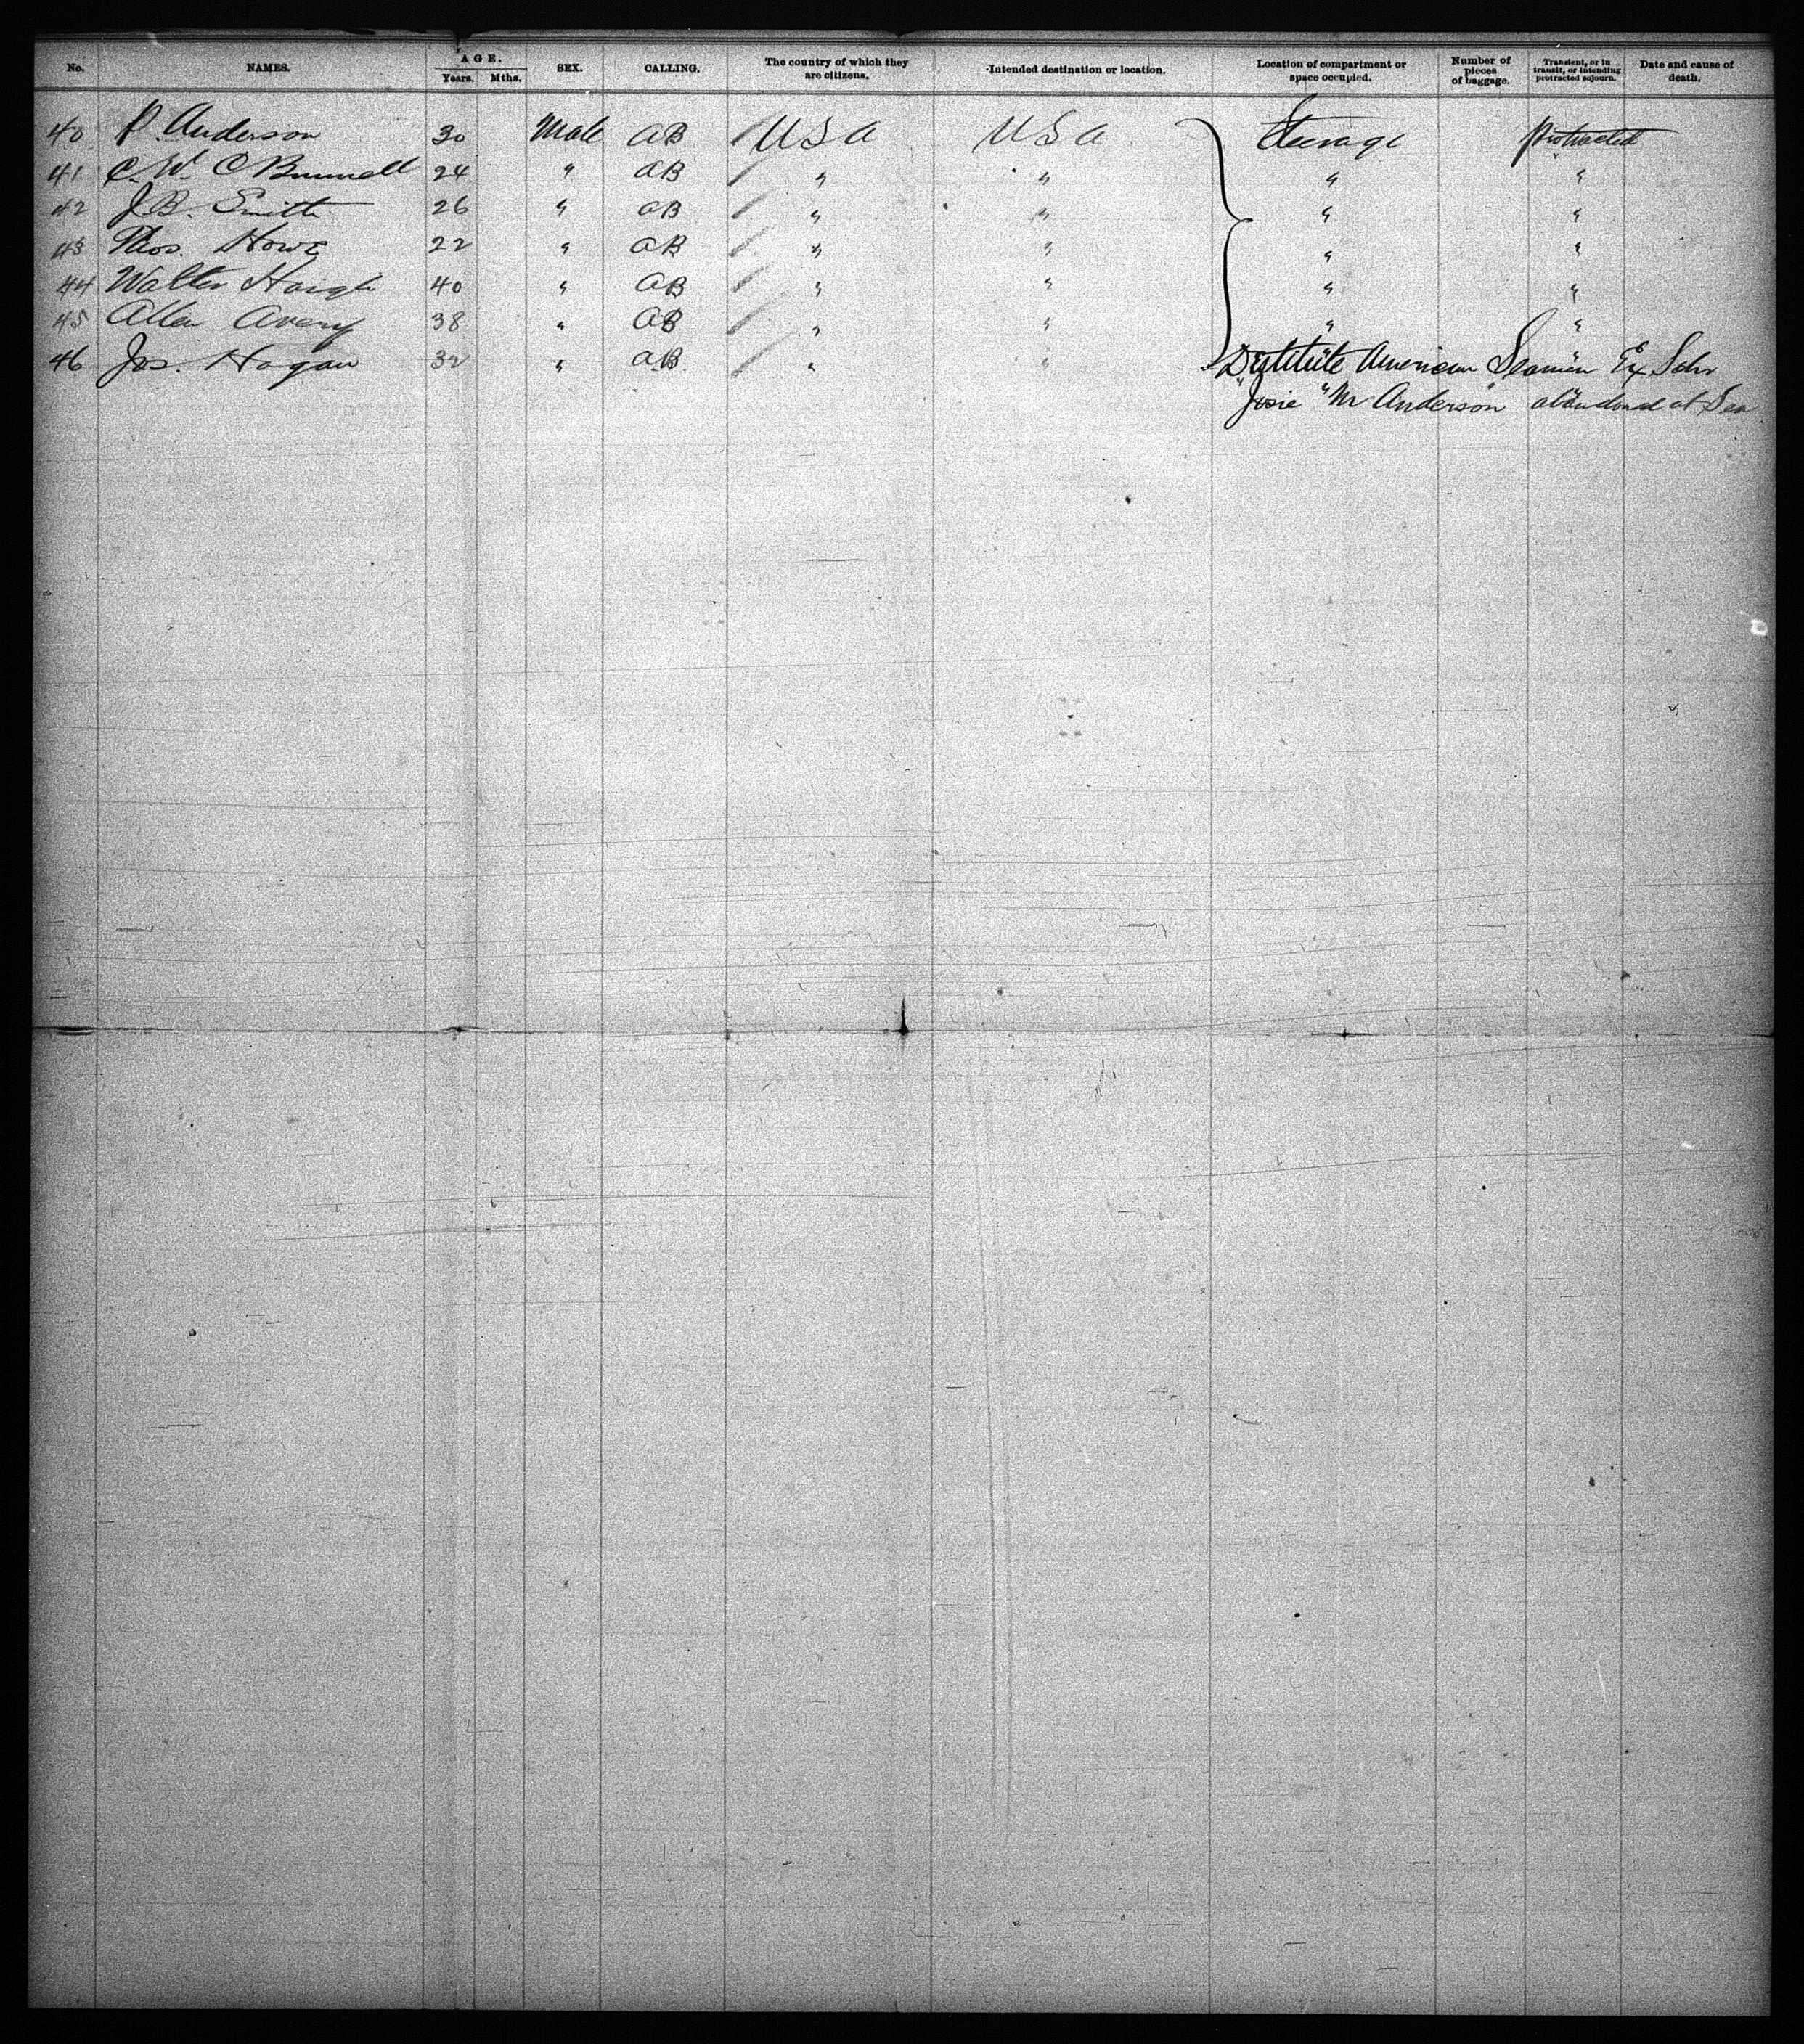 No. NAMES. AGE. Years. Mths. SEX. CALLING. The country of which they are citizens. Intended destination or location. Location of compartment or space occupied. Number of pieces of baggage. Transient, or in transit, or intending protracted sojourn. Date and cause of death.
40 P. Anderson 30 Male AB USA USA Steerage Protracted
41 C. W. 24 " AB " " " "
42 J. B. Smith 26 " AB " " " "
43 Thos. Howe 22 " AB " " " "
44 Walter Haigh 40 " AB " " " "
45 Allen Avery 38 " AB " " " "
46 Jos. Hogan 32 " AB " " " "
Destitute American Seamen Ex Schr
"Josie M Anderson" abandoned at Sea